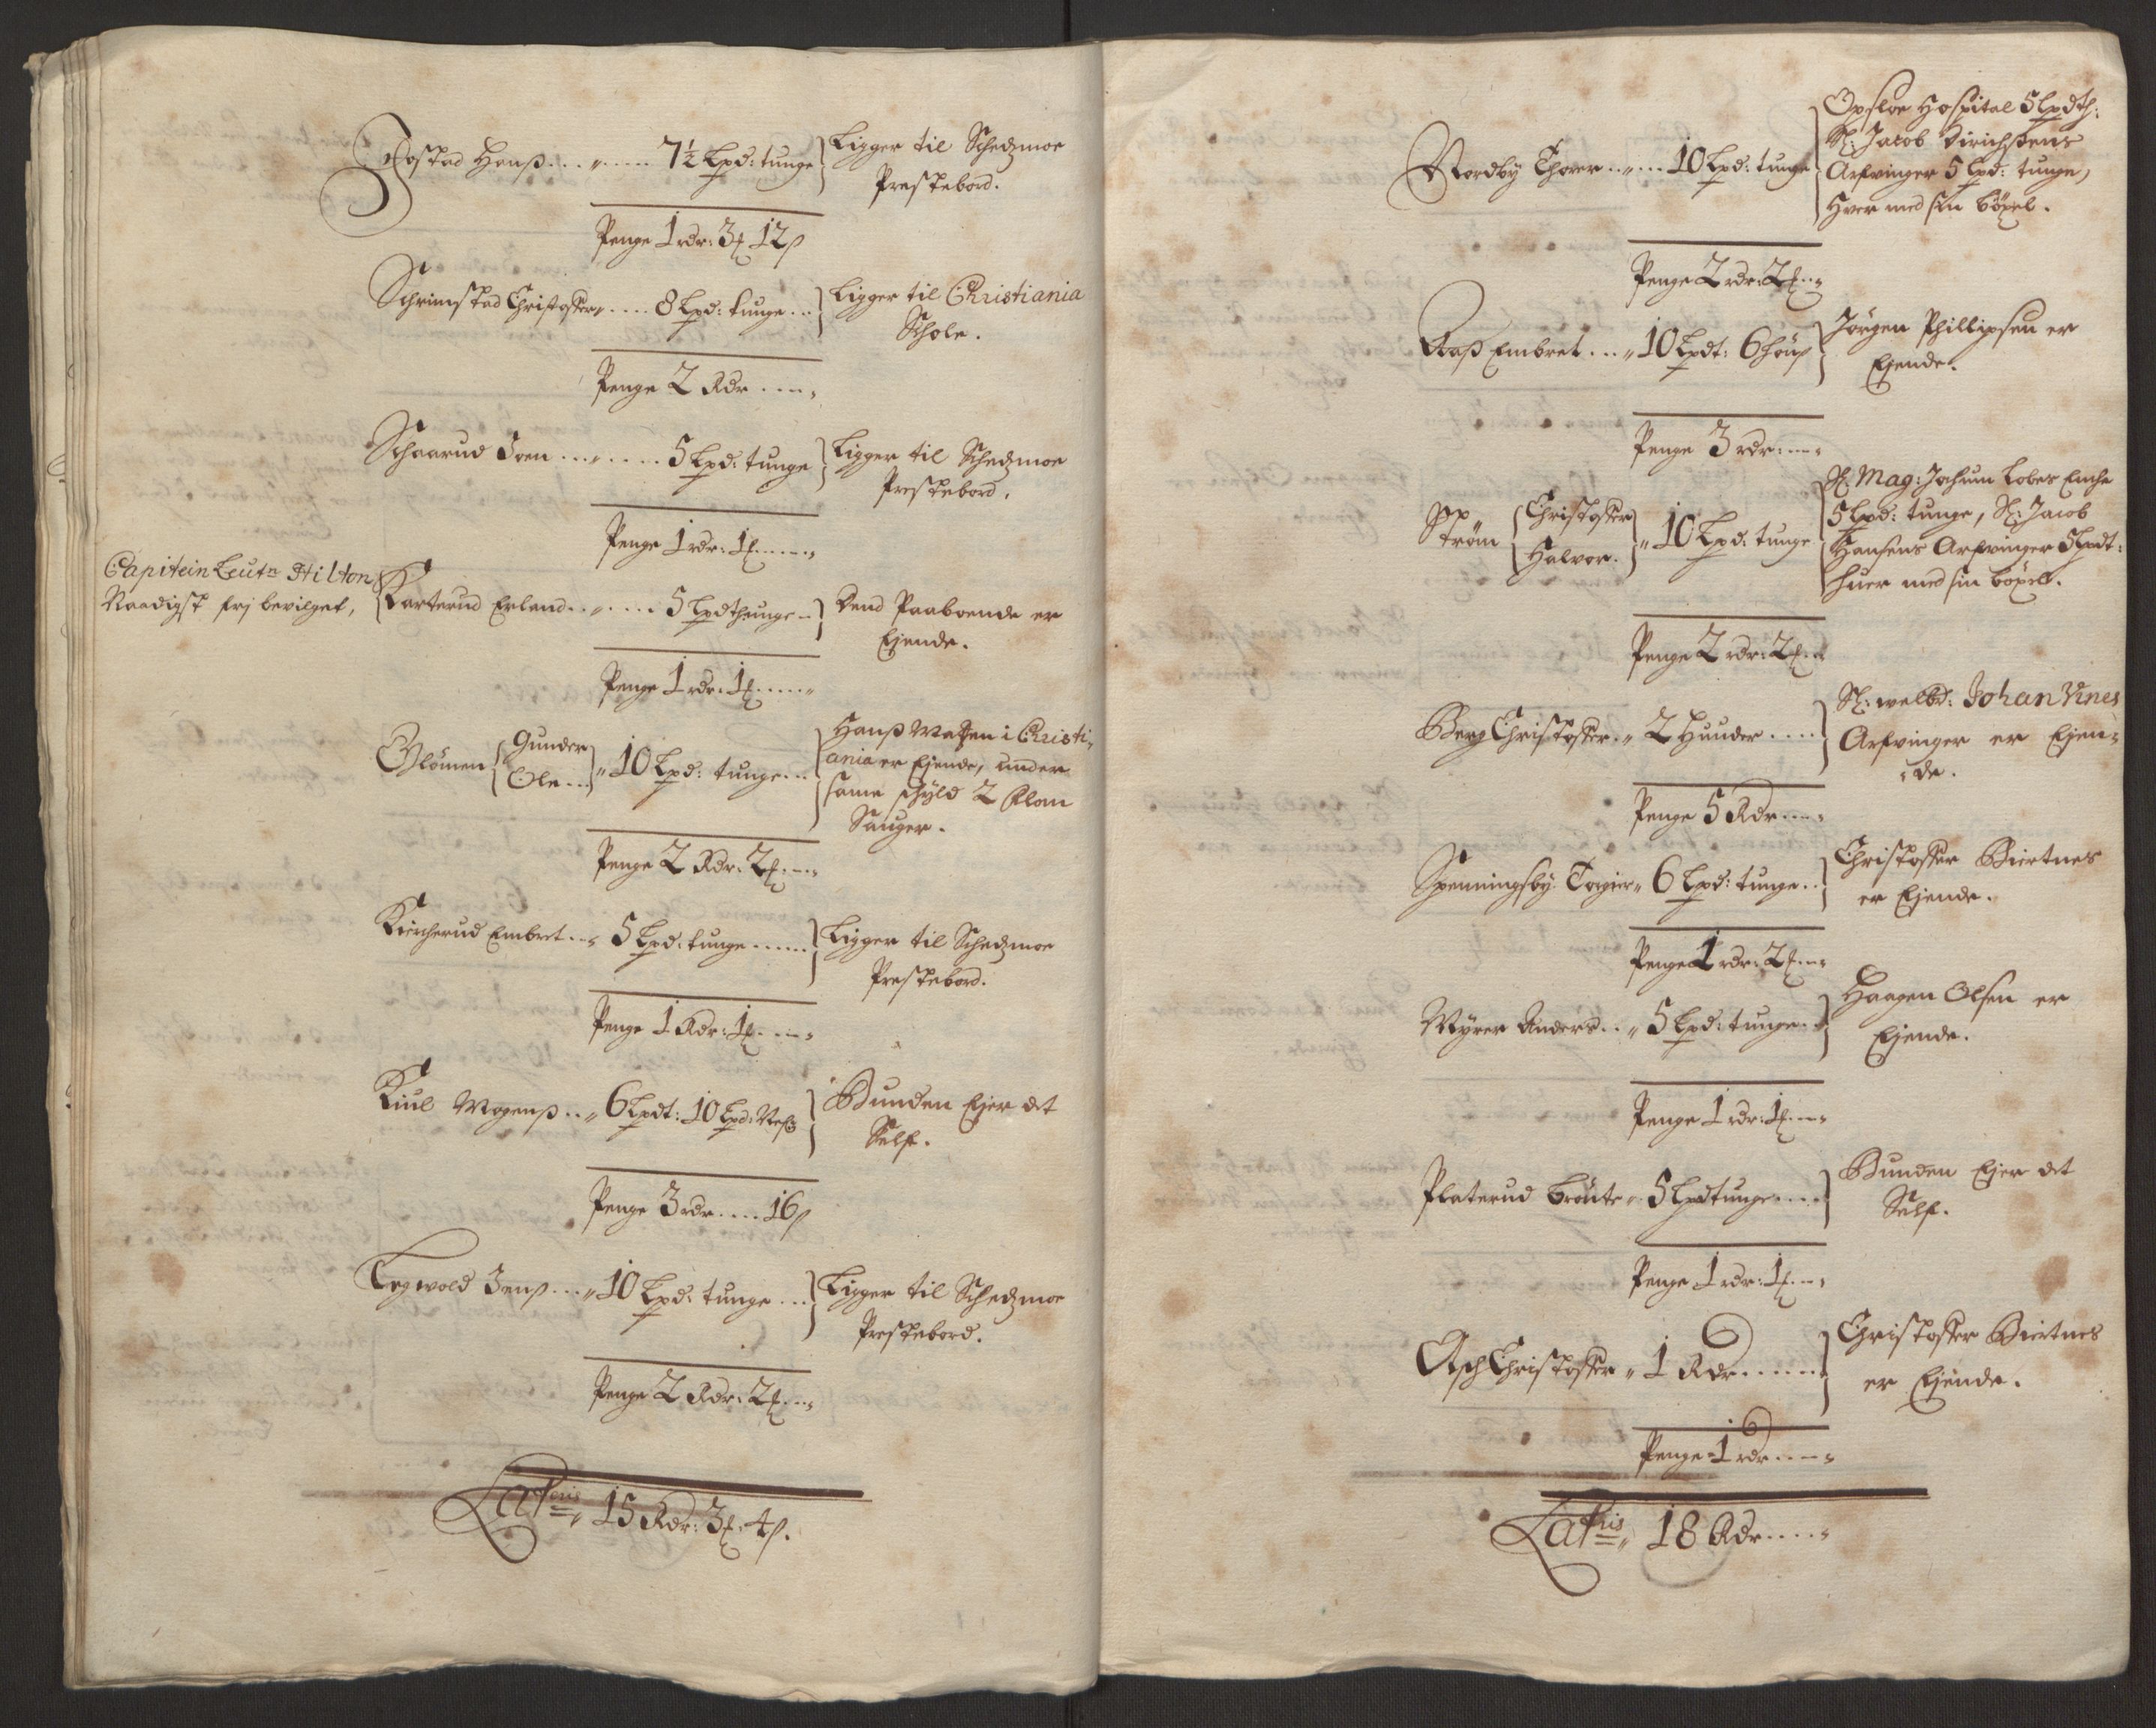 Jostad Hanß . . . „ . . . . . 7½ Lpd: tunge } Ligger til Schedzmoe
Prestebord.
Penge 1 rdr: 3 12 ß
Schrimstad Christoffer „ . . . . 8 Lpd: tunge . . . } Ligger til Christiania
Schole.
Penge 2 Rdr . . . . „
Schaarud Joen . . . „ . . . . . 5 Lpd: tunge } Ligger til Schedzmoe
Prestebord,
Penge 1 rdr: 1 . . . . . „
Capitein Leutn Hilton
Naadigst frj bevilget, { Karterud Erland . . „ . . . . . 5 Lpdthunge . . } Dend Paaboende er
Ejende.
Penge 1 rdr: 1 . . . . . „
Glömen { Gunder
Ole . . . } „ 10 Lpd: tunge . . . { Hanß Watzen i Christi-
ania er Ejende, under
same schyld 2
Sauger.
Penge 2 Rdr: 2 . . . „
Kircherud Embret . . „ 5 Lpd: tunge . . . . . . } Ligger til Schedzmoe
Prestebord.
Penge 1 Rdr: 1 . . . . „
Kiul Mogenß . . „ 6 Lpdt: 10 Lpd: } Bunden Ejer det
Self.
Penge 3 rdr . . . . 16 ß
Legwold Jenß . . . „ 10 Lpd: tunge . . . } Ligger til Schedzmoe
Prestebord.
Penge 2 Rdr: 2 . . . „
Lateris „ 15 Rdr: 3 4 ß.
Nordby Thorer . . „ . . . 10 Lpd: tunge { Opsloe Hospital 5 Lpdth:
Sl: Jacob Dirichsens
Arfvinger 5 Lpd: tunge,
Hver med sin böxel.
Penge 2 rdr: 2 . . . „
Aaß Embret . . . „ 10 Lpdt: 6 } Jörgen Phillipsen er
Ejende.
Penge 3 rdr: . . . „
Ström { Christoffer
Halvor. } „ 10 Lpd: tunge { Sl: Mag: Jochum Lobes Enche
5 Lpd: tunge, Sl: Jacob
Hansens Arfvinger 5 Lpdt:
huer med sin böxel.
Penge 2 rdr: 2 . . „
Berg Christoffer . „ 2 Hunder . . . . } Sl: welbd: Johan Vines
Arfvinger er Ejen-
de.
Penge 5 Rdr . . . „
Spenningsby Torgier „ 6 Lpd: tunge . . } Christoffer Biertnes
er Ejende.
Penge 1 rdr: 2 . . . „
Myrer Anders . . „ 5 Lpd: tunge . . } Haagen Olsen er
Ejende.
Penge 1 rdr: 1 . . . „
Platerud Bröute „ 5 Lpdtunge . . . . } Bunden Ejer det
Self.
Penge 1 rdr: 1 . . . „
Asch Christoffer „ 1 Rdr . . . . . . } Christoffer Biertnes
er Ejende.
Penge 1 rdr . . . . „
Latris „ 18 Rdr . . . . „